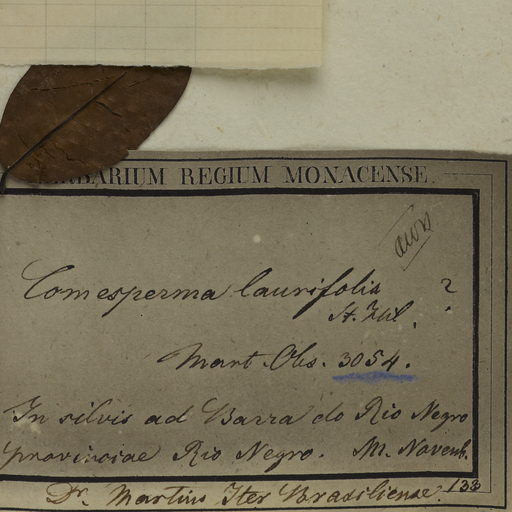 HERBARIUM REGIUM MONACENSE.
Comesperma laurifolia ?
St. Hil.
Mart. Obs. 3054.
In silvis ad Barra do Rio Negro
provinciae Rio Negro. M. Novemb.
Dr. Martius Iter Brasiliense. 133